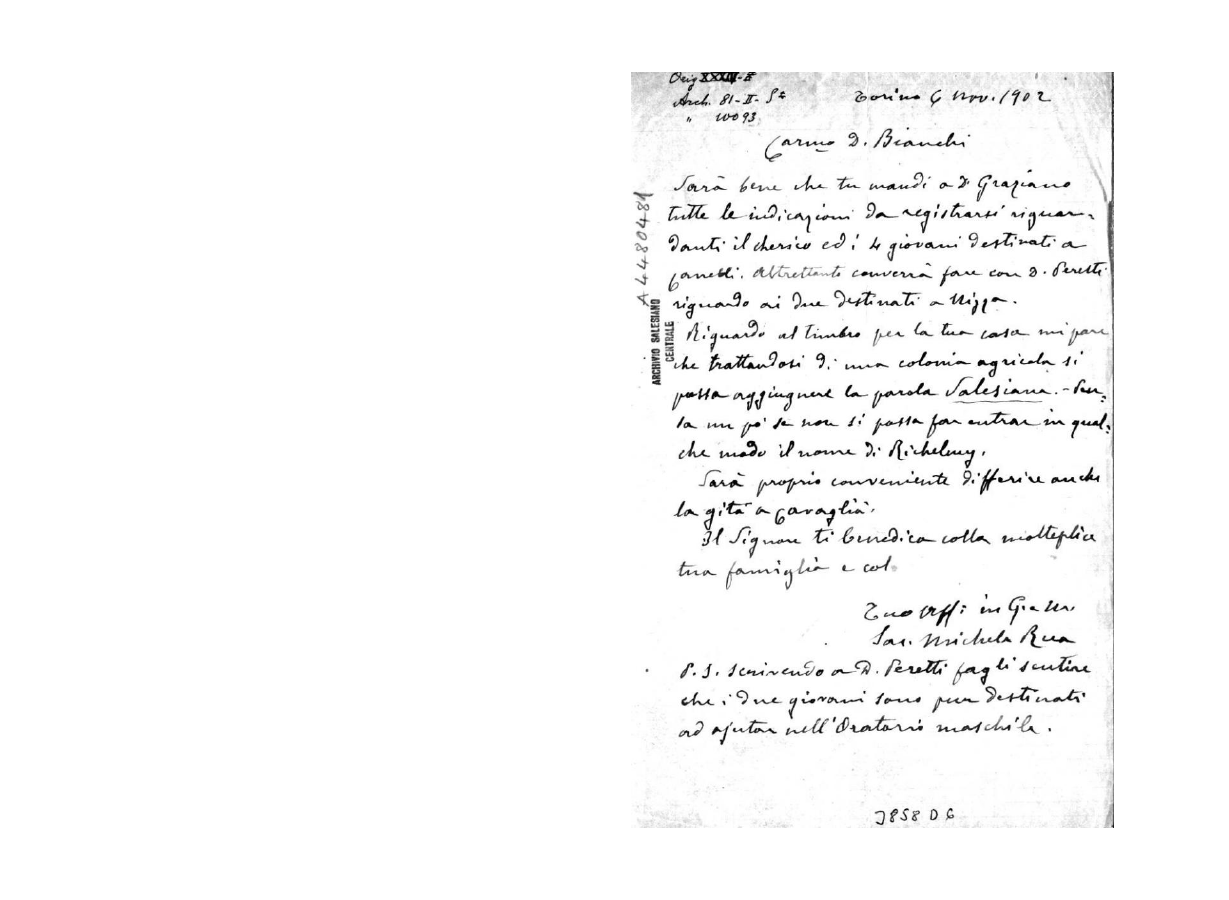 Orig XXXIV-E
Arch. 81-II-S
" 10093
Torino 6 Nov. 1902
Carmo D. Bianchi
Sarà bene che tu mandi a D Graziano
tutte le indicazioni da registrarsi riguar-
danti il cherico ed i 4 giovani destinati a
Canelli. Altrettanto converrà fare con D. Peretti
riguardo ai due destinati a Nizza.
Riguardo al timbro per la tua casa mi pare
che trattandosi di una colonia agricola si
possa aggiugnere la parola Salesiana. - Pen-
sa un po' se non si possa far entrar in qual-
che modo il nome di Richelmy.
Sarà proprio conveniente differire anche
la gita a Cavaglià.
Il Signore ti benedica colla molteplice
tua famiglia e col
Tuo Aff: in G. e M.
Sac. Michele Rua
P. S. Scrivendo a D. Peretti fagli sentire
che i due giovani sono pur destinati
ad ajutar nell'Oratorio maschile.
A4480481
ARCHIVIO SALESIANO
CENTRALE
3858 D 6